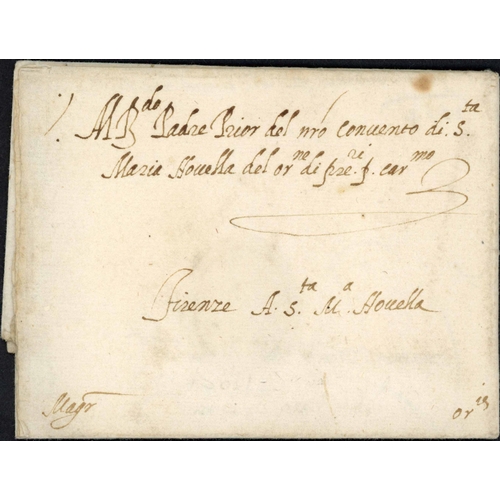 M R.do Padre Prior del nrō Convento di S.ta
Maria Novella del or.ne di pre.ri p. car.mo
Firenze A S.ta M.a Novella
Magr